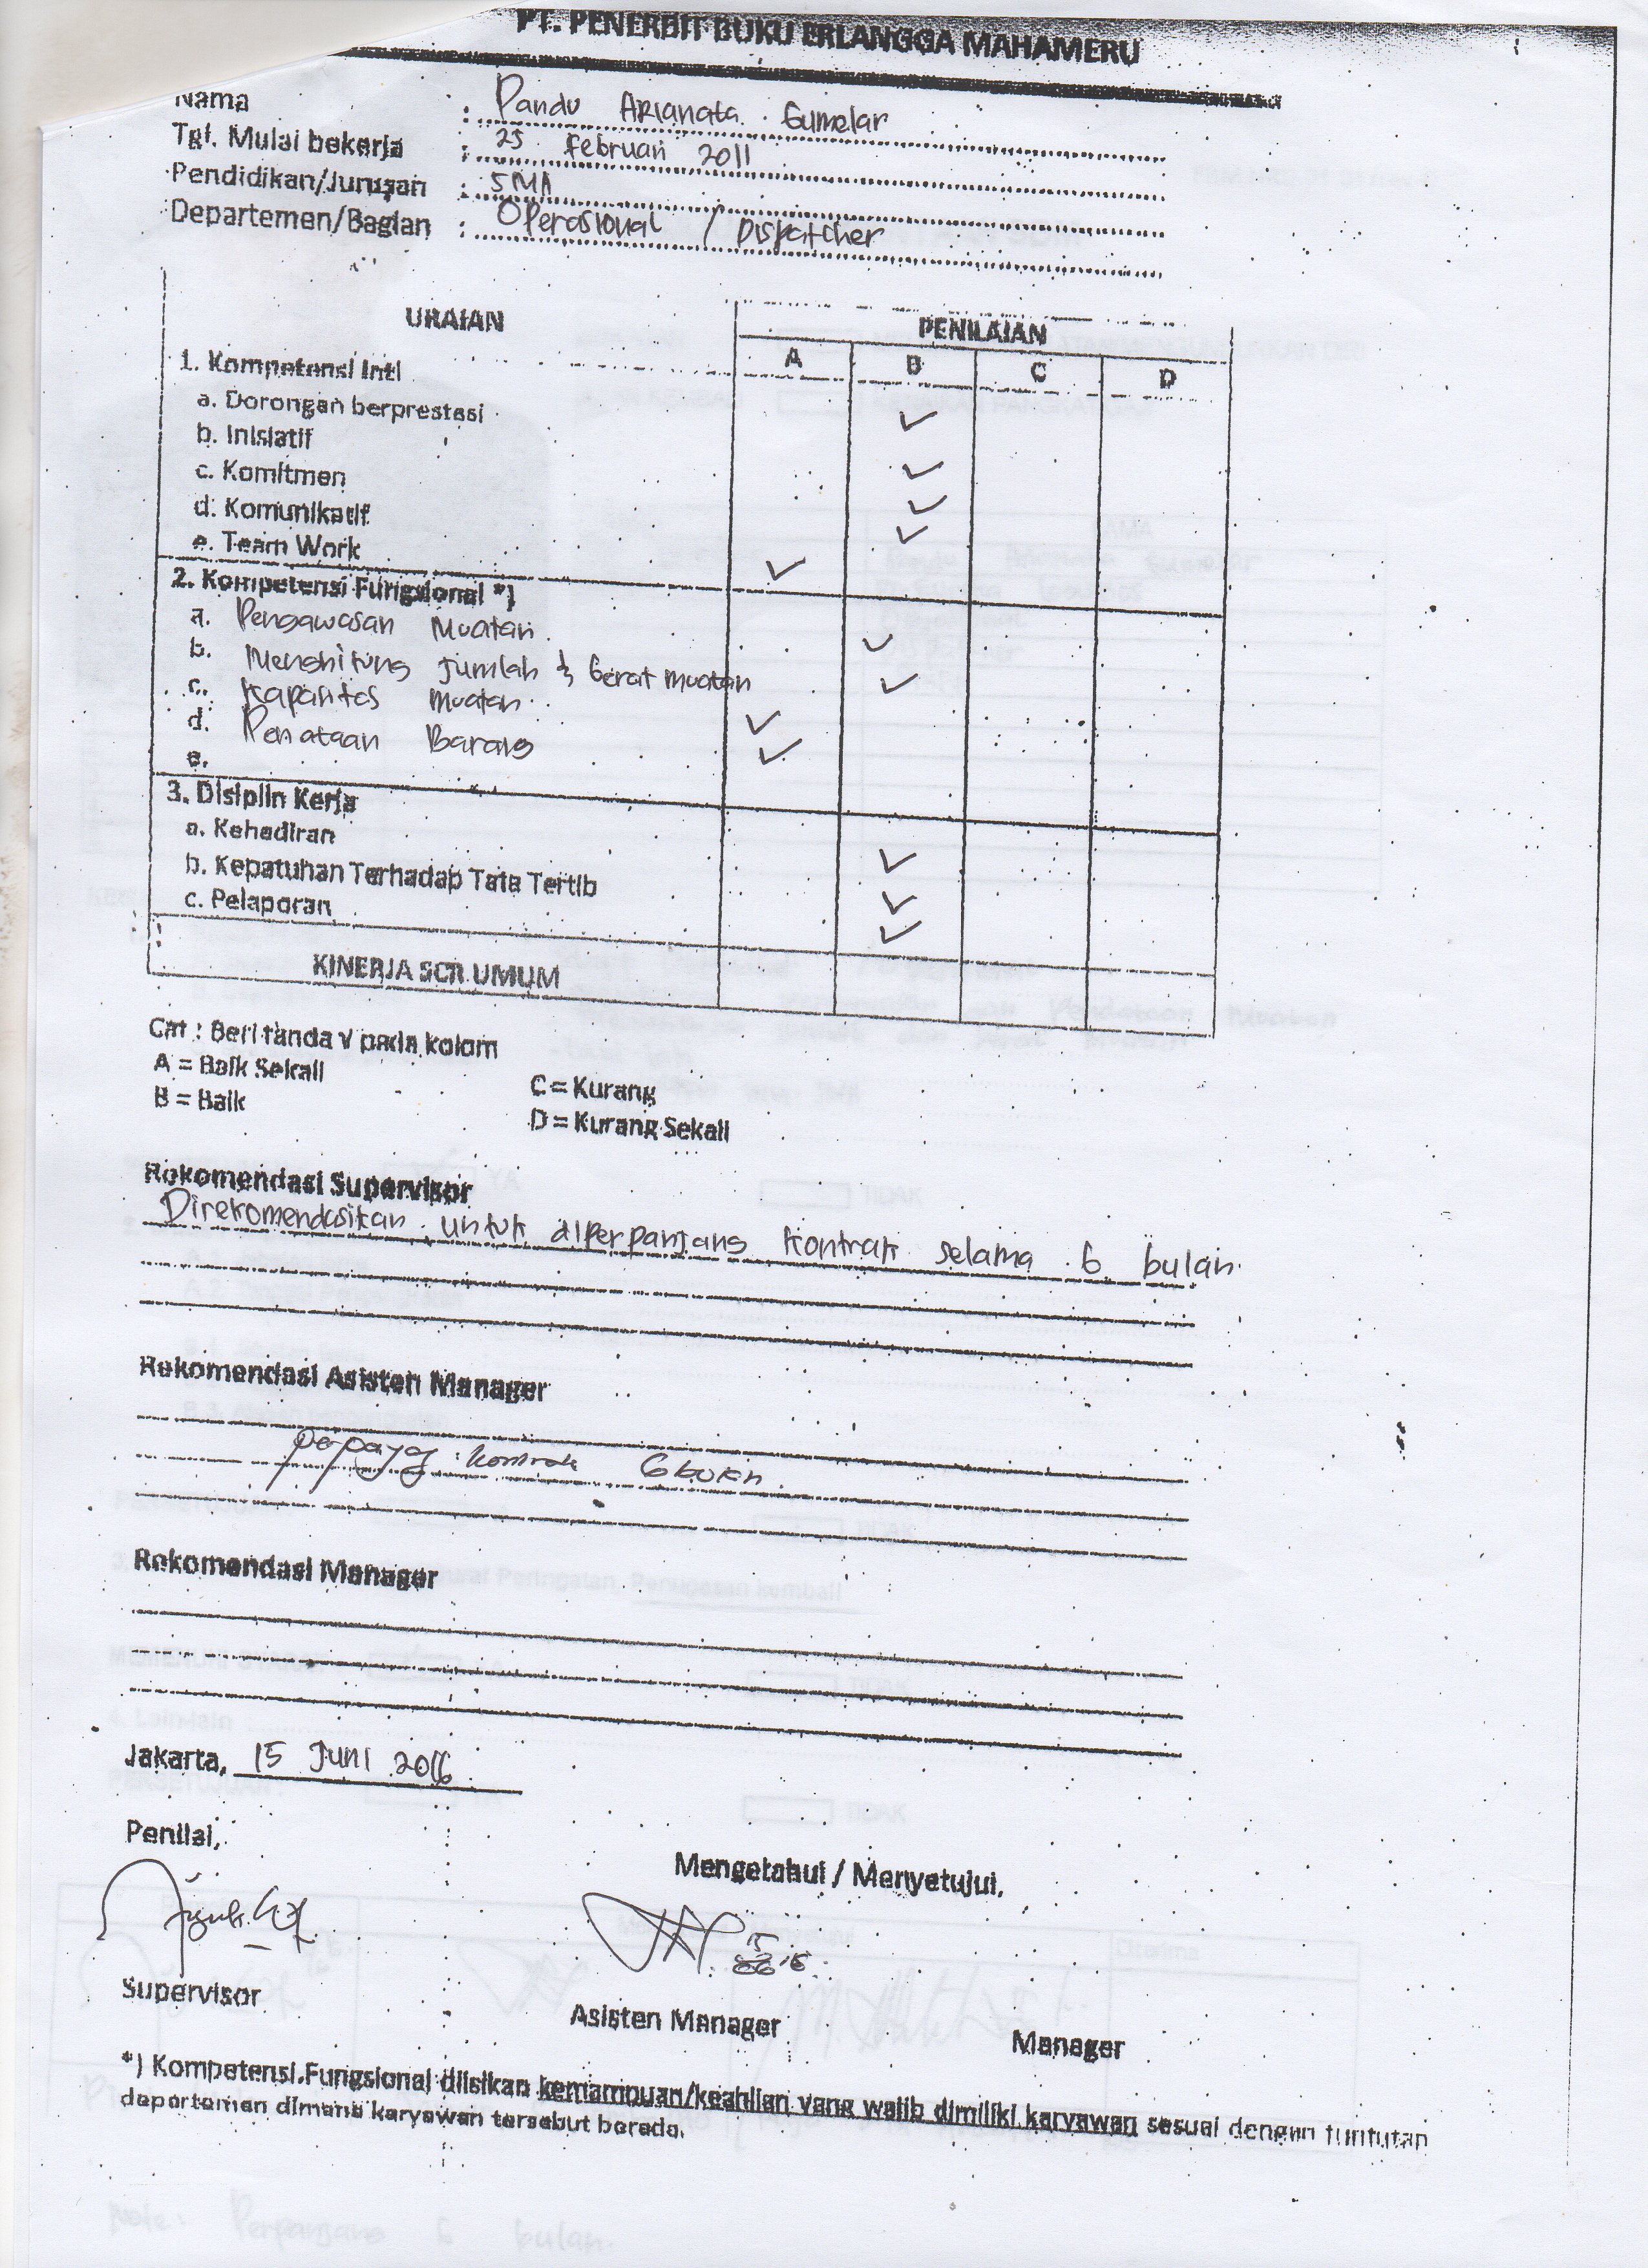 PT. PENERBIT BUKU ERLANGGA MAHAMERU
Nama : Pandu Arianata Gumelar
Tgl. Mulai bekerja : 25 Februari 2011
Pendidikan/Jurusan : SMA
Departemen/Bagian : Operasional / Dispatcher
URAIAN PENILAIAN
A B C D
1. Kompetensi Inti
a. Dorongan berprestasi ✓
b. Inisiatif ✓
c. Komitmen ✓
d. Komunikatif ✓
e. Team Work ✓
2. Kompetensi Fungsional *)
a. Pengawasan Muatan ✓
b. Menghitung Jumlah & Berat muatan ✓
c. Kapasitas muatan ✓
d. Penataan Barang ✓
e.
3. Disiplin Kerja
a. Kehadiran ✓
b. Kepatuhan Terhadap Tata Tertib ✓
c. Pelaporan ✓
KINERJA SCR UMUM
Cat : Beri tanda V pada kolom
A = Baik Sekali C = Kurang
B = Baik D = Kurang Sekali
Rekomendasi Supervisor
Direkomendasikan untuk diperpanjang kontrak selama 6 bulan
Rekomendasi Asisten Manager
kontrak 6 bulan
Rekomendasi Manager
Jakarta, 15 Juni 2016
Penilai,
Mengetahui / Menyetujui,
15/06 '16
Supervisor Asisten Manager Manager
*) Kompetensi Fungsional diisikan kemampuan/keahlian yang wajib dimiliki karyawan sesuai dengan tuntutan
departemen dimana karyawan tersebut berada.
Note : Perpanjang 6 bulan